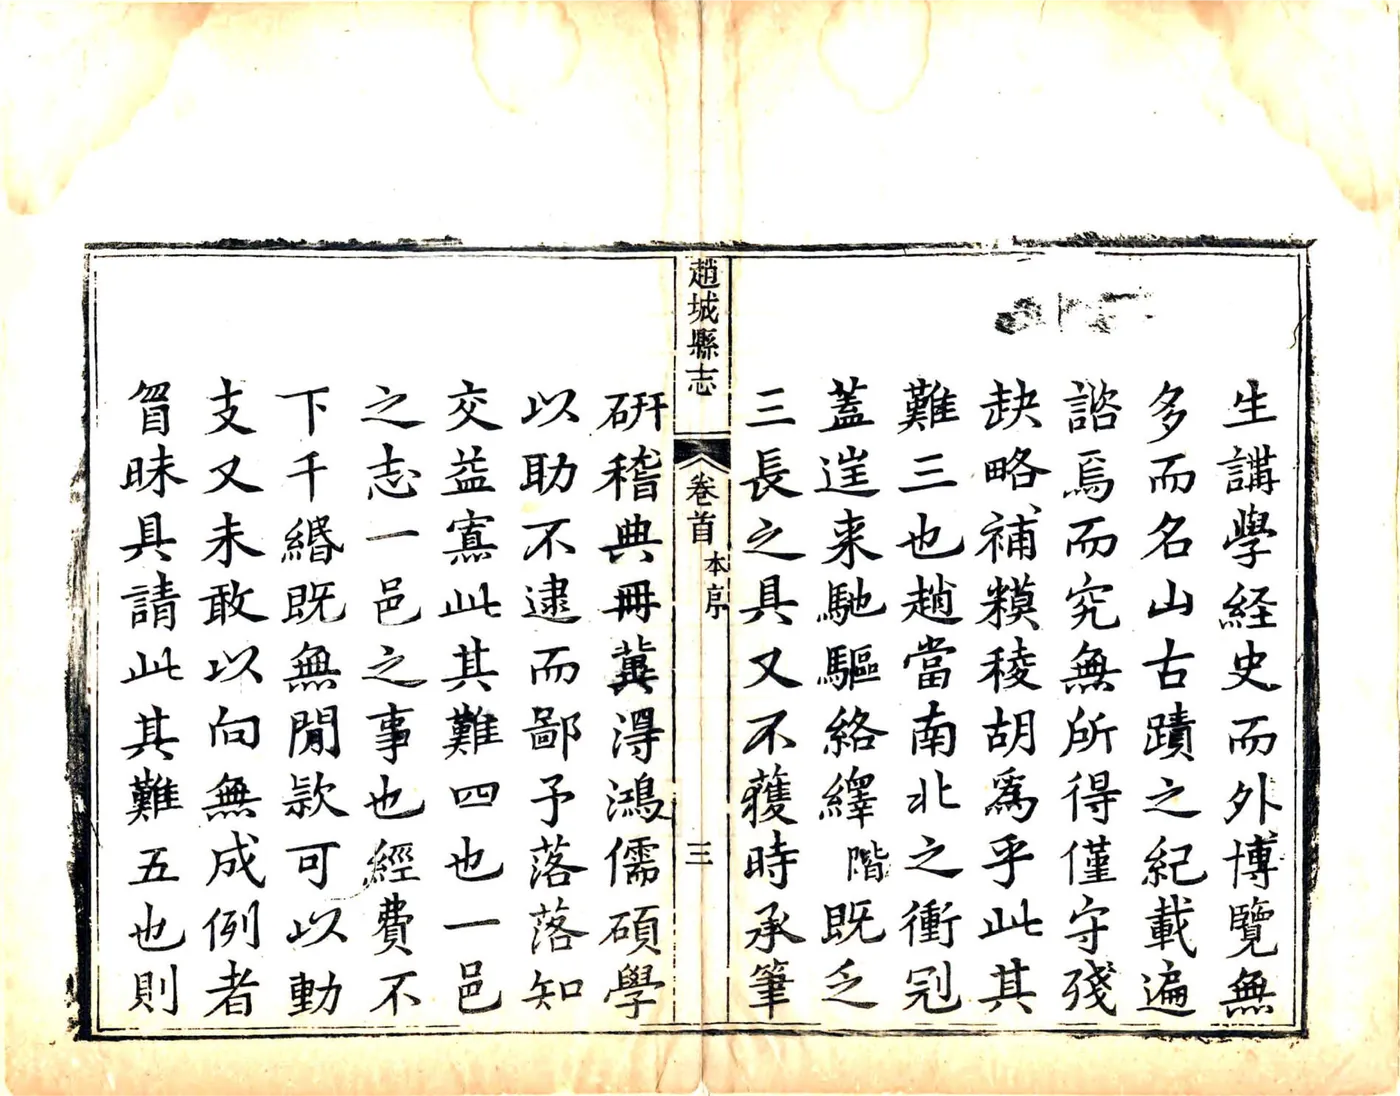 生講學経史而外博覽無
多而名山古蹟之紀載遍
諮焉而究無所得僅守殘
缺略補糢稜胡爲乎此其
難三也趙當南北之衝冠
蓋来馳驅絡繹階既乏
三長之具又不獲時承筆
趙城縣志
卷首
本序
三
硏稽典冊冀得鴻儒碩學
以助不逮而鄙予落落知
交益寡此其難四也一邑
之志一邑之事也經費不
下千緡既無閒款可以動
支又未敢以向無成例者
冒昧具請此其難五也則